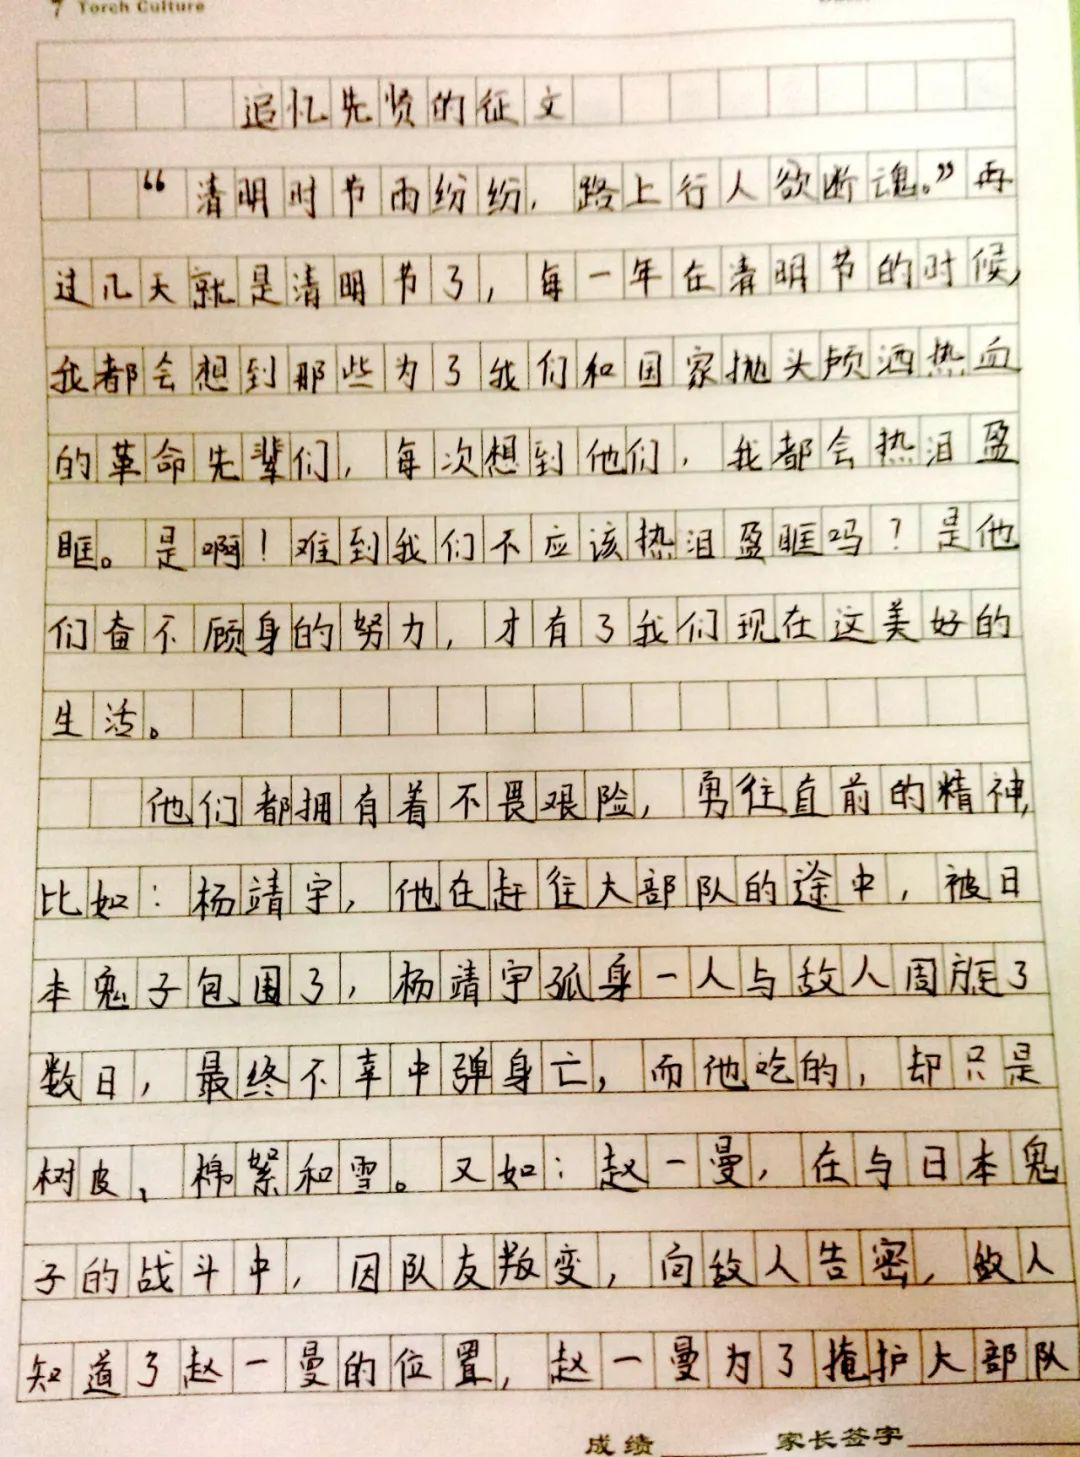 Torch Culture
追忆先贤的征文
“清明时节雨纷纷，路上行人欲断魂。”再
过几天就是清明节了，每一年在清明节的时候，
我都会想到那些为了我们和国家抛头颅洒热血
的革命先辈们，每次想到他们，我都会热泪盈
眶。是啊！难到我们不应该热泪盈眶吗？是他
们奋不顾身的努力，才有了我们现在这美好的
生活。
他们都拥有着不畏艰险，勇往直前的精神，
比如：杨靖宇，他在赶往大部队的途中，被日
本鬼子包围了，杨靖宇孤身一人与敌人周旋了
数日，最终不幸中弹身亡，而他吃的，却只是
树皮、棉絮和雪。又如：赵一曼，在与日本鬼
子的战斗中，因队友叛变，向敌人告密，敌人
知道了赵一曼的位置，赵一曼为了掩护大部队
成绩 家长签字